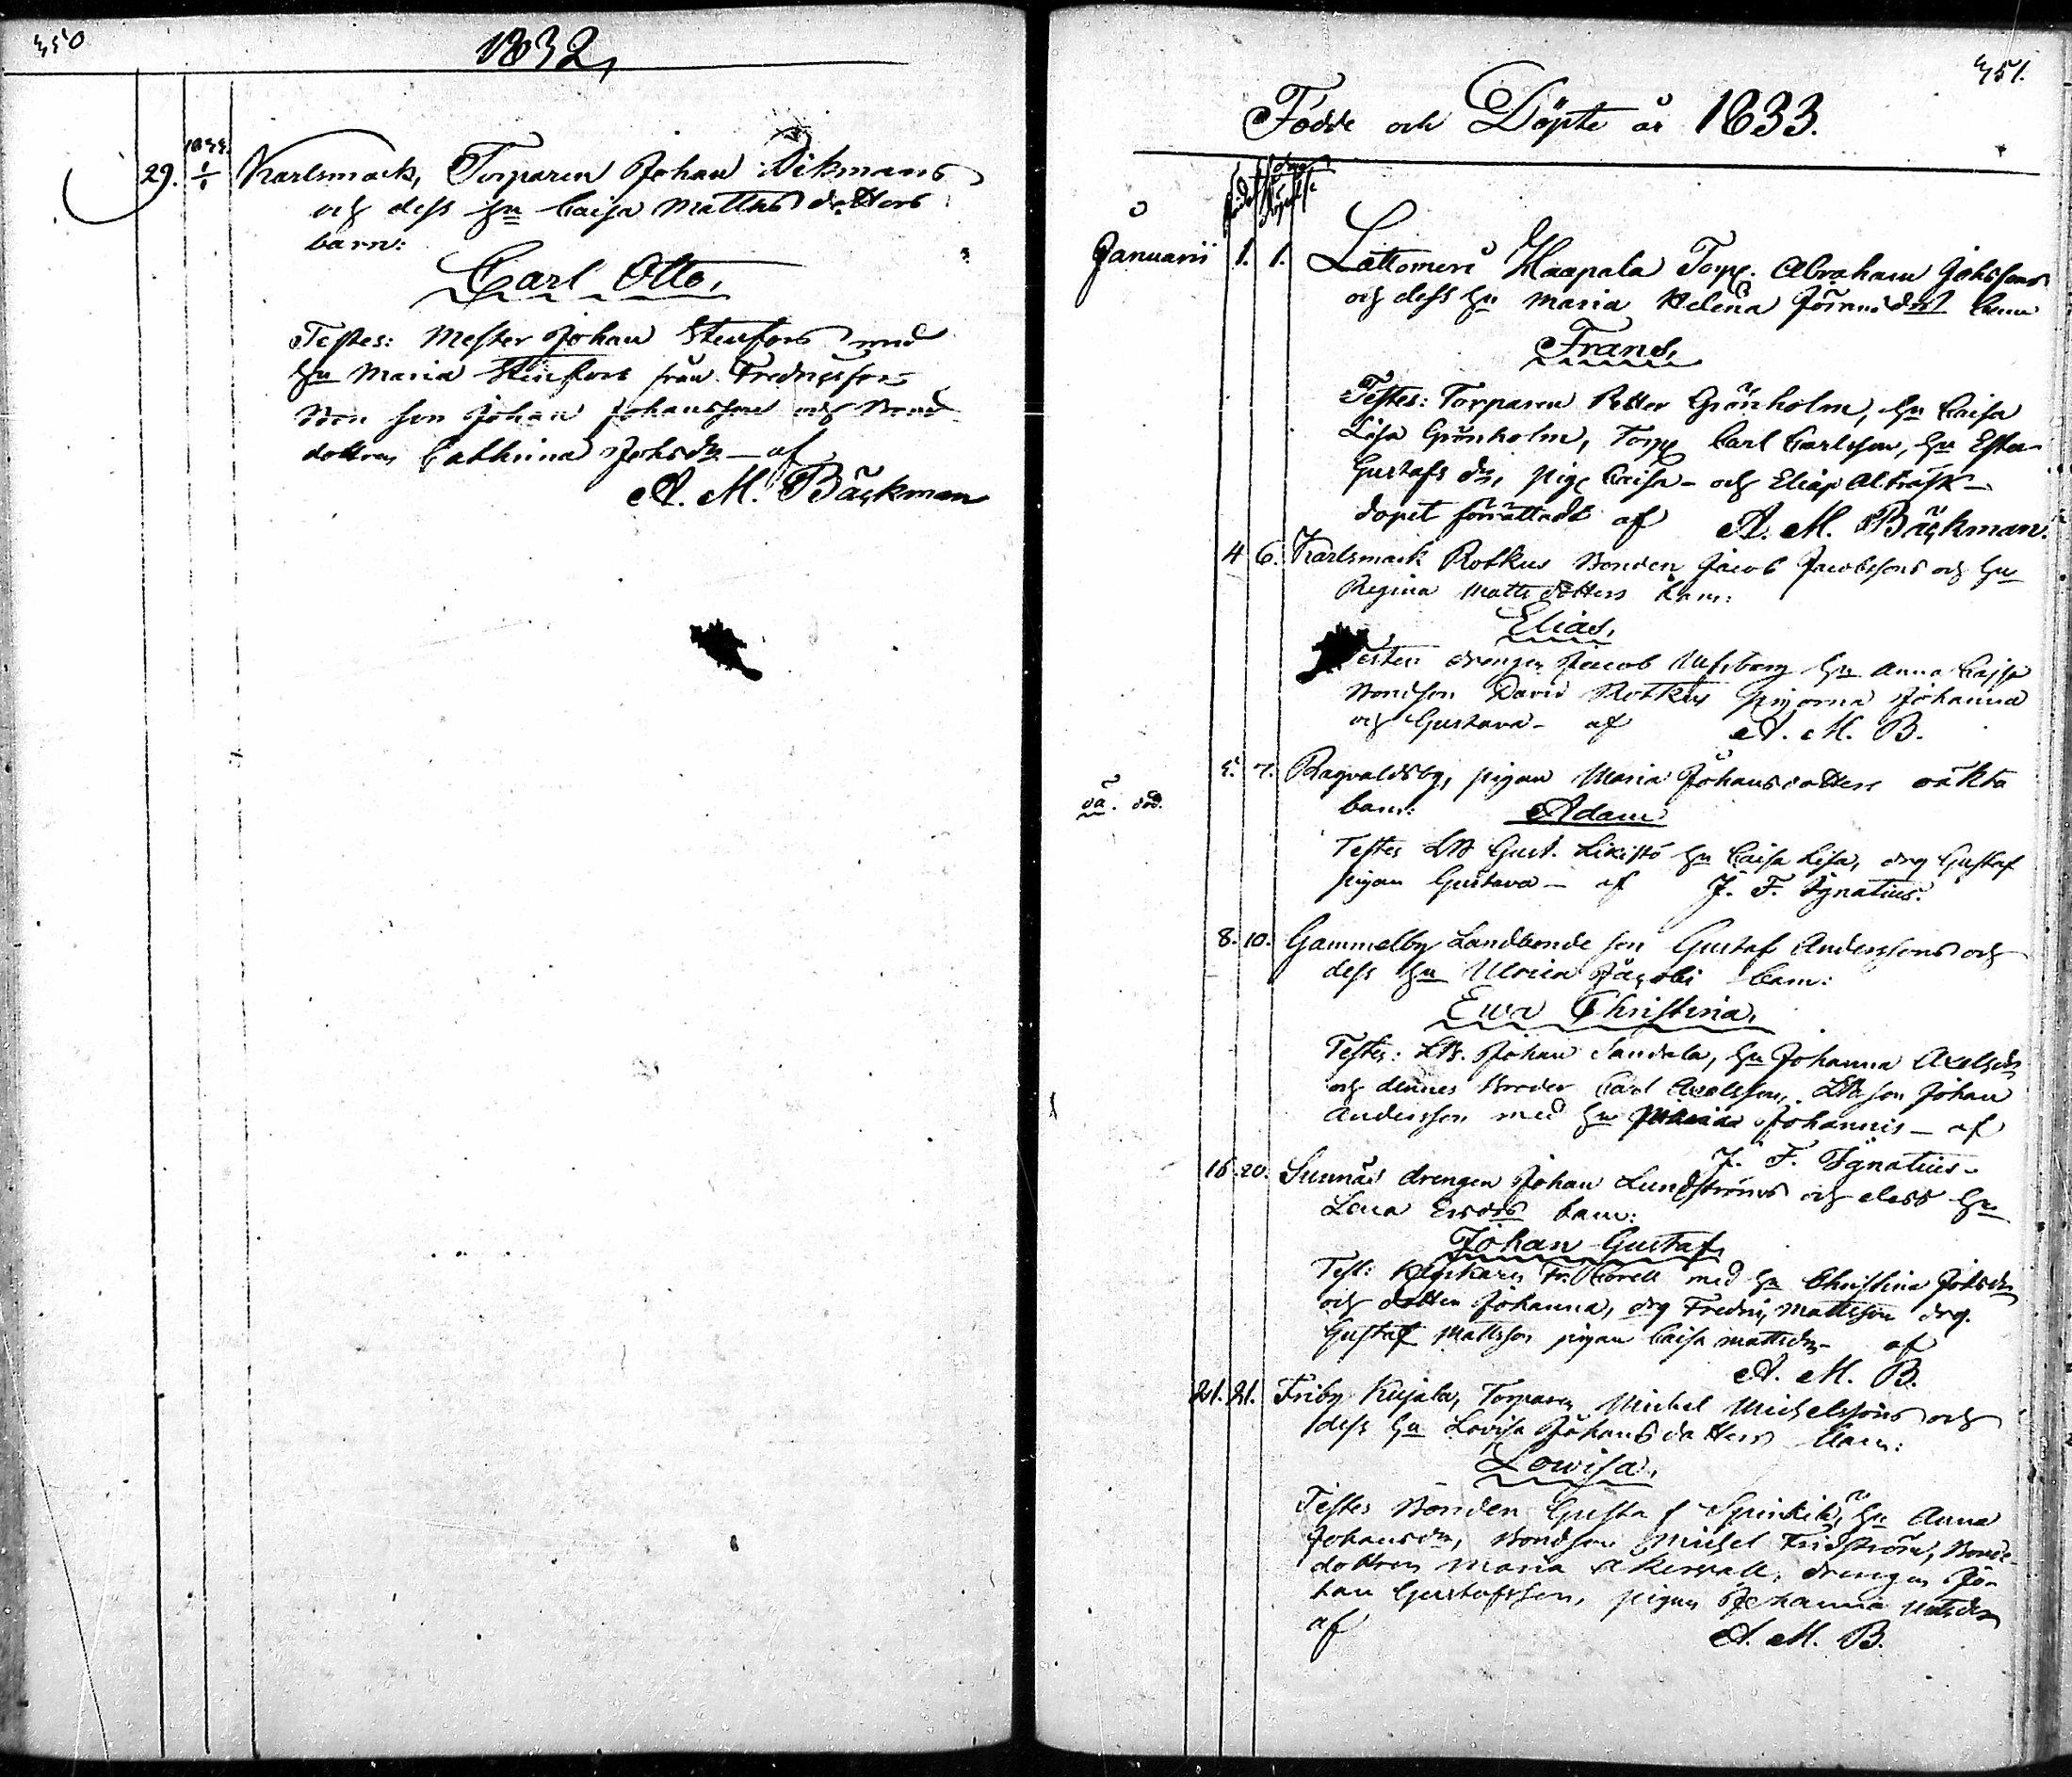 350
1832,
1833.
29. 1/1 Karlsmark, Torparen Johan Vikmans
och dess hu Caisa Matths dotters
barn:
Carl Otto,
Testes: Mester Johan Stenfors med
hu Maria Stenfors från Fredrigsfors
Bon son Johan Johansson och Bond
dottren Cathrina Johsdr — af
A. M. Bäckman
351.
Födde och Döpte år 1833.
Januarii 1. 1. Lattomeri Haapala Torp. Abraham Johssons
och dess hu Maria Helena Jöransdot barn
Frans,
Testes: Torparen Petter Grönholm, hu Caisa
Lisa Grönholm, Torp Carl Carlsson, hu Ester
Gustafs dr, pig Caisa – och Elias Alträsk –
dopet förrättadt af A. M. Bäckman.
4 6. Karlsmark Rotkus Bonden Jacob Jacobssons och hu
Regina Matts dotters barn:
Elias,
Testes drengen Jacob hu Anna Caisa
Bondson David Rotkus pigorna Johanna
och Gustava – af A. M. B.
5. 7. Ragvaldsby, pigan Maria Johansdotters oäkta
oä. död. barn: Adam
Testes LB Gust. Likistö hu Caisa Lisa, drg Gustaf
pigan Gustava – af J. F. Ignatius.
8. 10. Gammelby Landbonde son Gustaf Anderssons och
dess hu Ulrica Jacobi barn:
Ewa Christina,
Testes: LB. Johan Sandela, hu Johanna Axelsdr
och dennes Broder Carl Axelsson, LB son Johan
Andersson med hu Maria Johannis – af
J. F. Ignatius –
16 20. Sunnäs drengen Johan Lundströms och dess hu
Lena Ersdrs barn:
Johan Gustaf,
Test: Klockaren Fr. Corell med hu Christina Johsdr
och dotter Johanna, drg Fredric Mattsson drg.
Gustaf Mattsson pigan Caisa Mattsdr – af
A. M. B.
21. 21. Friby Kujala, Torparen Michel Michelssons och
dess hu Lovisa Johansdotters barn:
Lowisa,
Testes Bonden Gustaf Spinkilä, hu Anna
Johansdr, Bondson Michel Fridström, Bonde
dottren Maria Åkervall, drengen Jo-
han Gustafsson, pigan Johanna Mattsdr
af A. M. B.